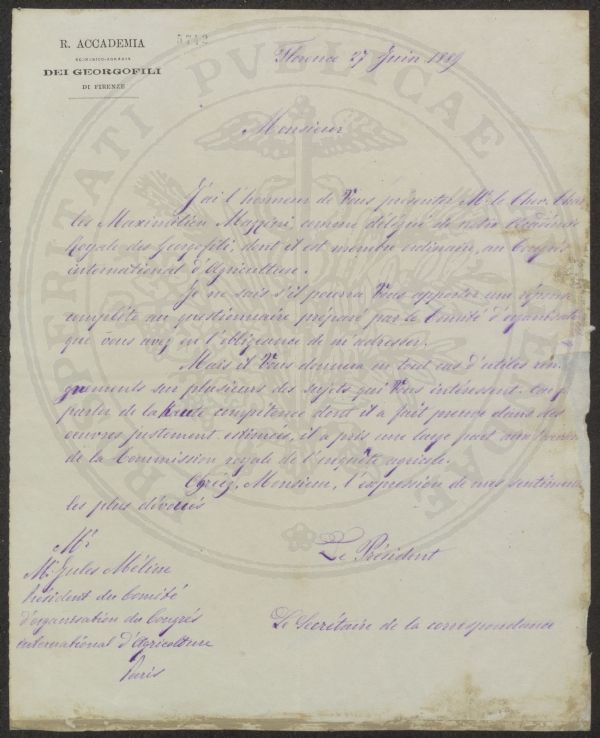 R. ACCADEMIA
ECONOMICO-AGRARIA
DEI GEORGOFILI
DI FIRENZE
5742
PROSPERITATI PUBLICAE AUGENDAE
Florence 27 Juin 1889
Monsieur
J'ai l'honneur de Vous présenter Mr. le Chev. Char
les Maximilien Mazzini comme délégué de notre Académie
Royale des Georgofili, dont il est membre ordinaire, au Congrès
international d'Agriculture.
Je ne sais s'il pourra Vous apporter une réponse
complète au questionnaire préparé par le Comité d'organisation
que vous avez eu l'obligeance de m'adresser.
Mais il Vous donnera en tout cas d'utiles ren
gnements sur plusieurs des sujets qui Vous intéressent. Car,
parler de la haute compétence dont il a fait preuve dans des
oeuvres justement estimées, il a pris une large part aux travaux
de la Commission royale de l'enquête agricole.
Agréez, Monsieur, l'expression de mes sentiments
les plus dévoués
Mr.
Mr. Jules Méline
Président du Comité
d'organisation du Congrès
international d'Agricolture
Paris
Le Président
Le Secrétaire de la correspondance